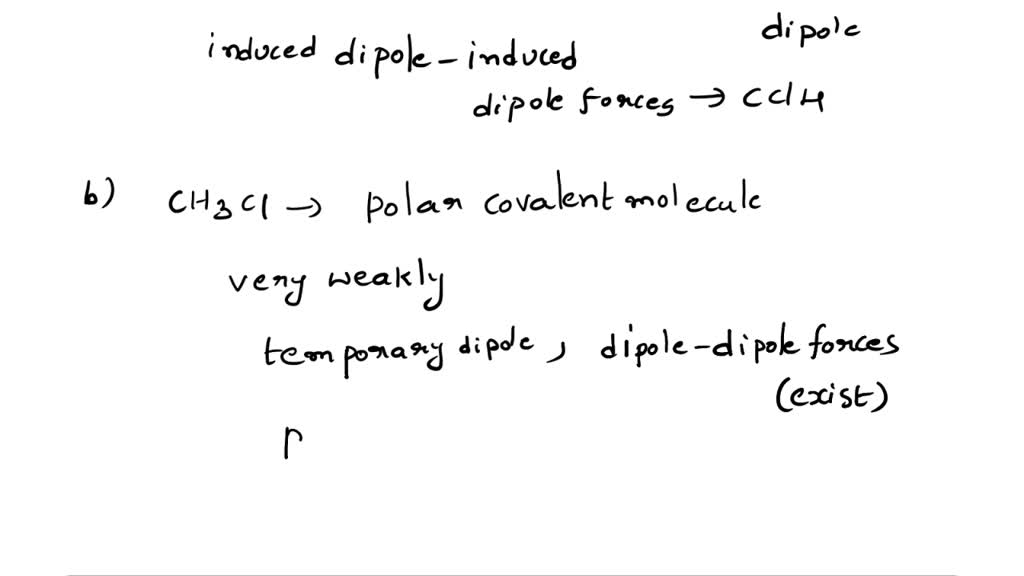 dipole
induced dipole - induced
dipole forces → CCl4
b) CH3Cl → polar covalent molecule
very weakly
temporary dipole, dipole-dipole forces
(exist)